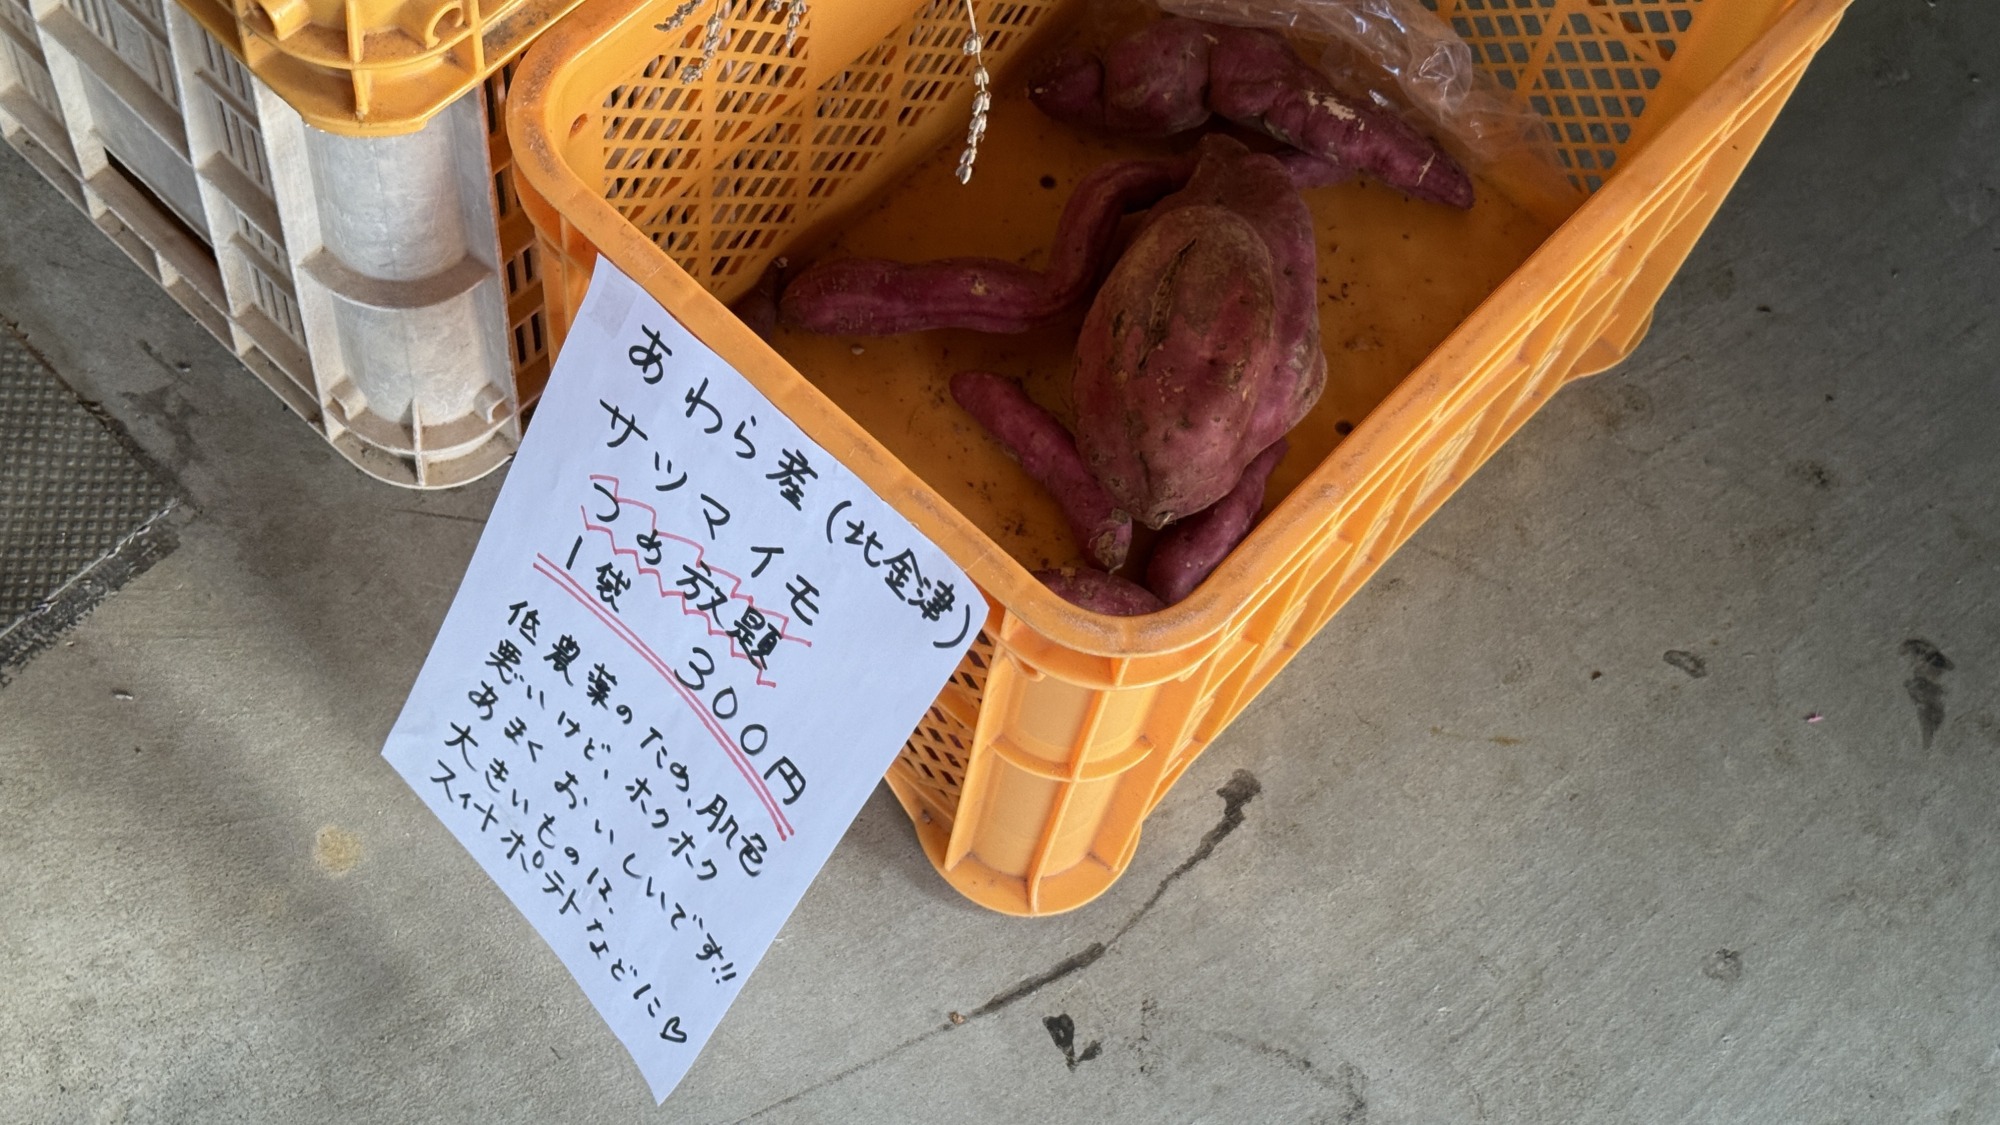 あわら産(北金津)
サツマイモ
つめ放題
1袋 300円
低農薬のため、肌色
悪いけど、ホクホク
あまくおいしいです!!
大きいものは、
スイートポテトなどに♡